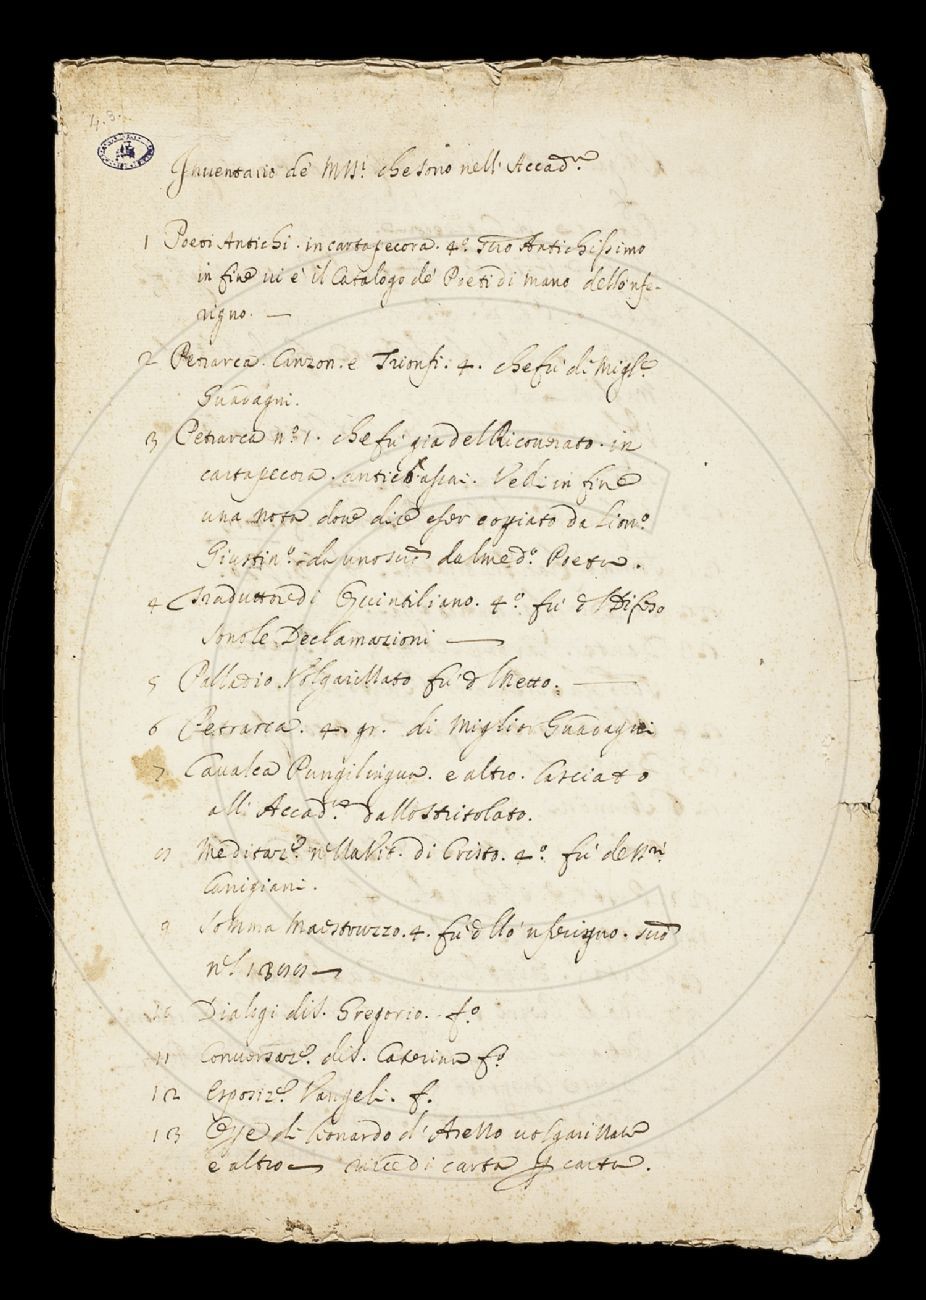 4. 3.
Inventario de' MSSi. che sono nell'Accad.a
1 Poeti Antichi. in cartapecora. 4.o Antichissimo
in fine vi è il Catalogo de' Poeti di mano dello 'nfe-
rigno. —
2 Petrarca. Canzon. e Trionfi. 4. che fu di Migl.e
Guadagni.
3 Petrarca n.o 1. che fu già del Ricovrato. in
cartapecora. antico assai. Vedi in fine
una nota dove dice esser copiato da Lion.o
Giustin.o da uno dal med.o Poeta.
4 di Quintiliano. 4.o fu d'
Sono le Declamazioni —
5 Palladio Volgarizzato fu d'l Netto. —
6 Petrarca. 4. gr. di Miglior Guadagni
7 Cavalca Pungilingua. e altro. lasciato
all'Accad.a dallo Stritolato.
8 Meditaz.e nella Vit. di Cristo. 4.o fu de' SSri.
Canigiani.
9 Somma Maestruzzo. 4. fu d'llo 'nferigno.
nel 1388 —
10 Dialogi di S. Gregorio. fo.
11 Conversaz.e di S. Caterina fo.
12 Esposiz.e Vangeli. f.
13 di Lionardo d'Arezzo volgarizzate
e altro — di carta p carta.